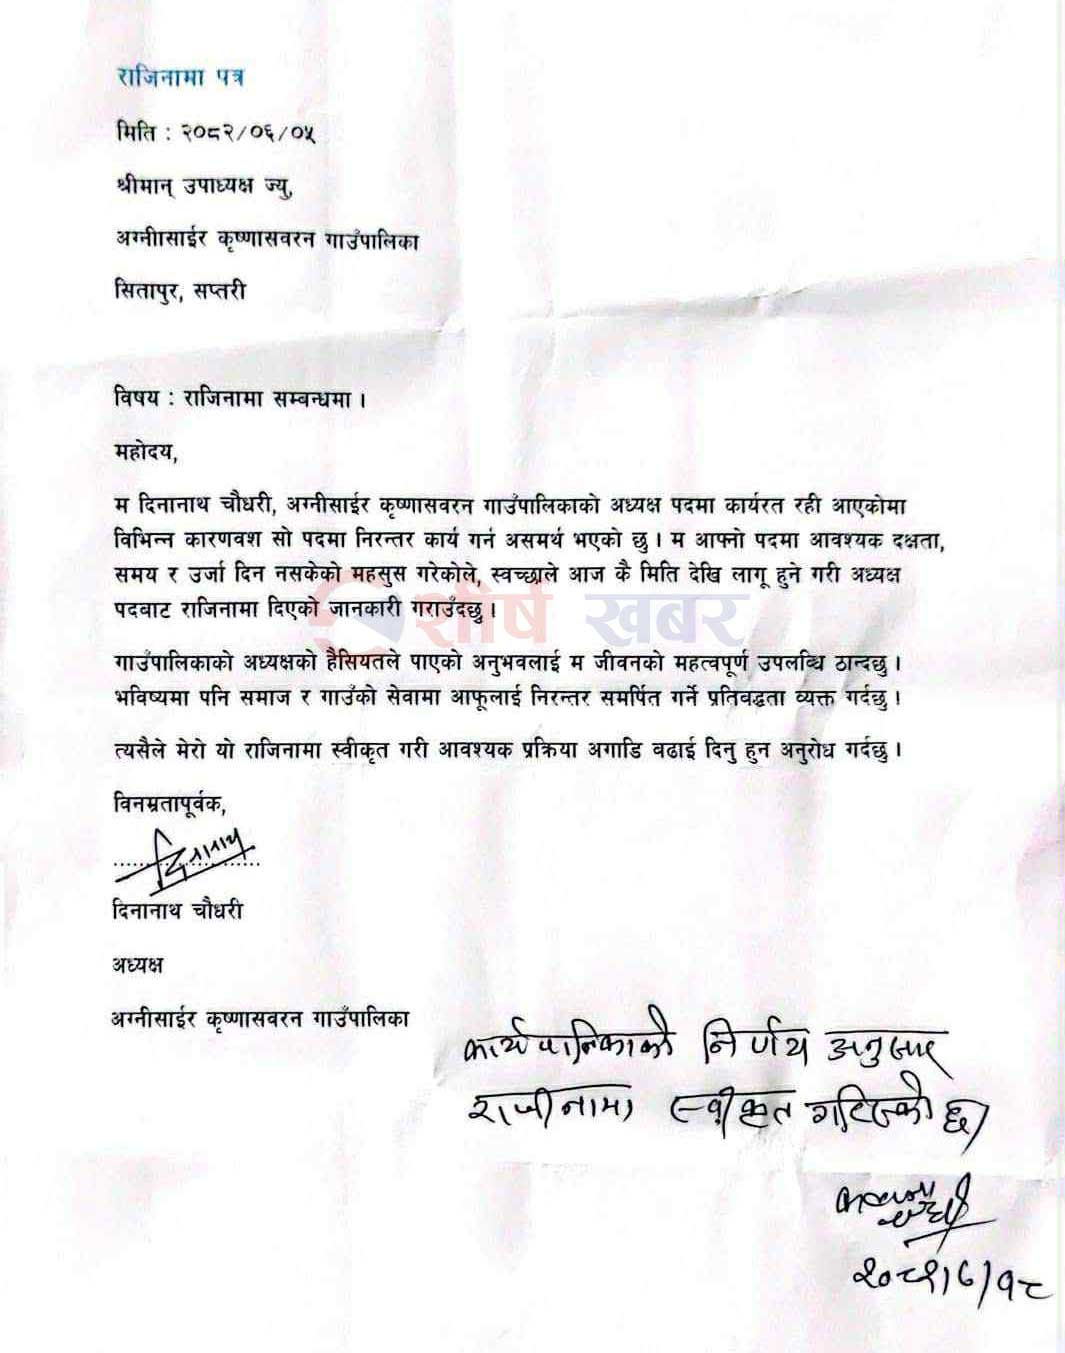 राजिनामा पत्र
मिति : २०८२/०६/०५
श्रीमान् उपाध्यक्ष ज्यु,
अग्नीासाईर कृष्णासवरन गाउँपालिका
सितापुर, सप्तरी
विषय : राजिनामा सम्बन्धमा ।
महोदय,
म दिनानाथ चौधरी, अग्नीसाईर कृष्णासवरन गाउँपालिकाको अध्यक्ष पदमा कार्यरत रही आएकोमा
विभिन्न कारणवश सो पदमा निरन्तर कार्य गर्न असमर्थ भएको छु । म आफ्नो पदमा आवश्यक दक्षता,
समय र उर्जा दिन नसकेको महसुस गरेकोले, स्वच्छाले आज कै मिति देखि लागू हुने गरी अध्यक्ष
पदबाट राजिनामा दिएको जानकारी गराउँदछु ।
शीर्ष खबर
गाउँपालिकाको अध्यक्षको हैसियतले पाएको अनुभवलाई म जीवनको महत्वपूर्ण उपलब्धि ठान्दछु ।
भविष्यमा पनि समाज र गाउँको सेवामा आफूलाई निरन्तर समर्पित गर्ने प्रतिवद्धता व्यक्त गर्दछु ।
त्यसैले मेरो यो राजिनामा स्वीकृत गरी आवश्यक प्रक्रिया अगाडि बढाई दिनु हुन अनुरोध गर्दछु ।
विनम्रतापूर्वक,
दिनानाथ
दिनानाथ चौधरी
अध्यक्ष
अग्नीसाईर कृष्णासवरन गाउँपालिका
कार्यपालिकाको निर्णय अनुसार
राजीनामा स्वीकृत गरिएको छ।